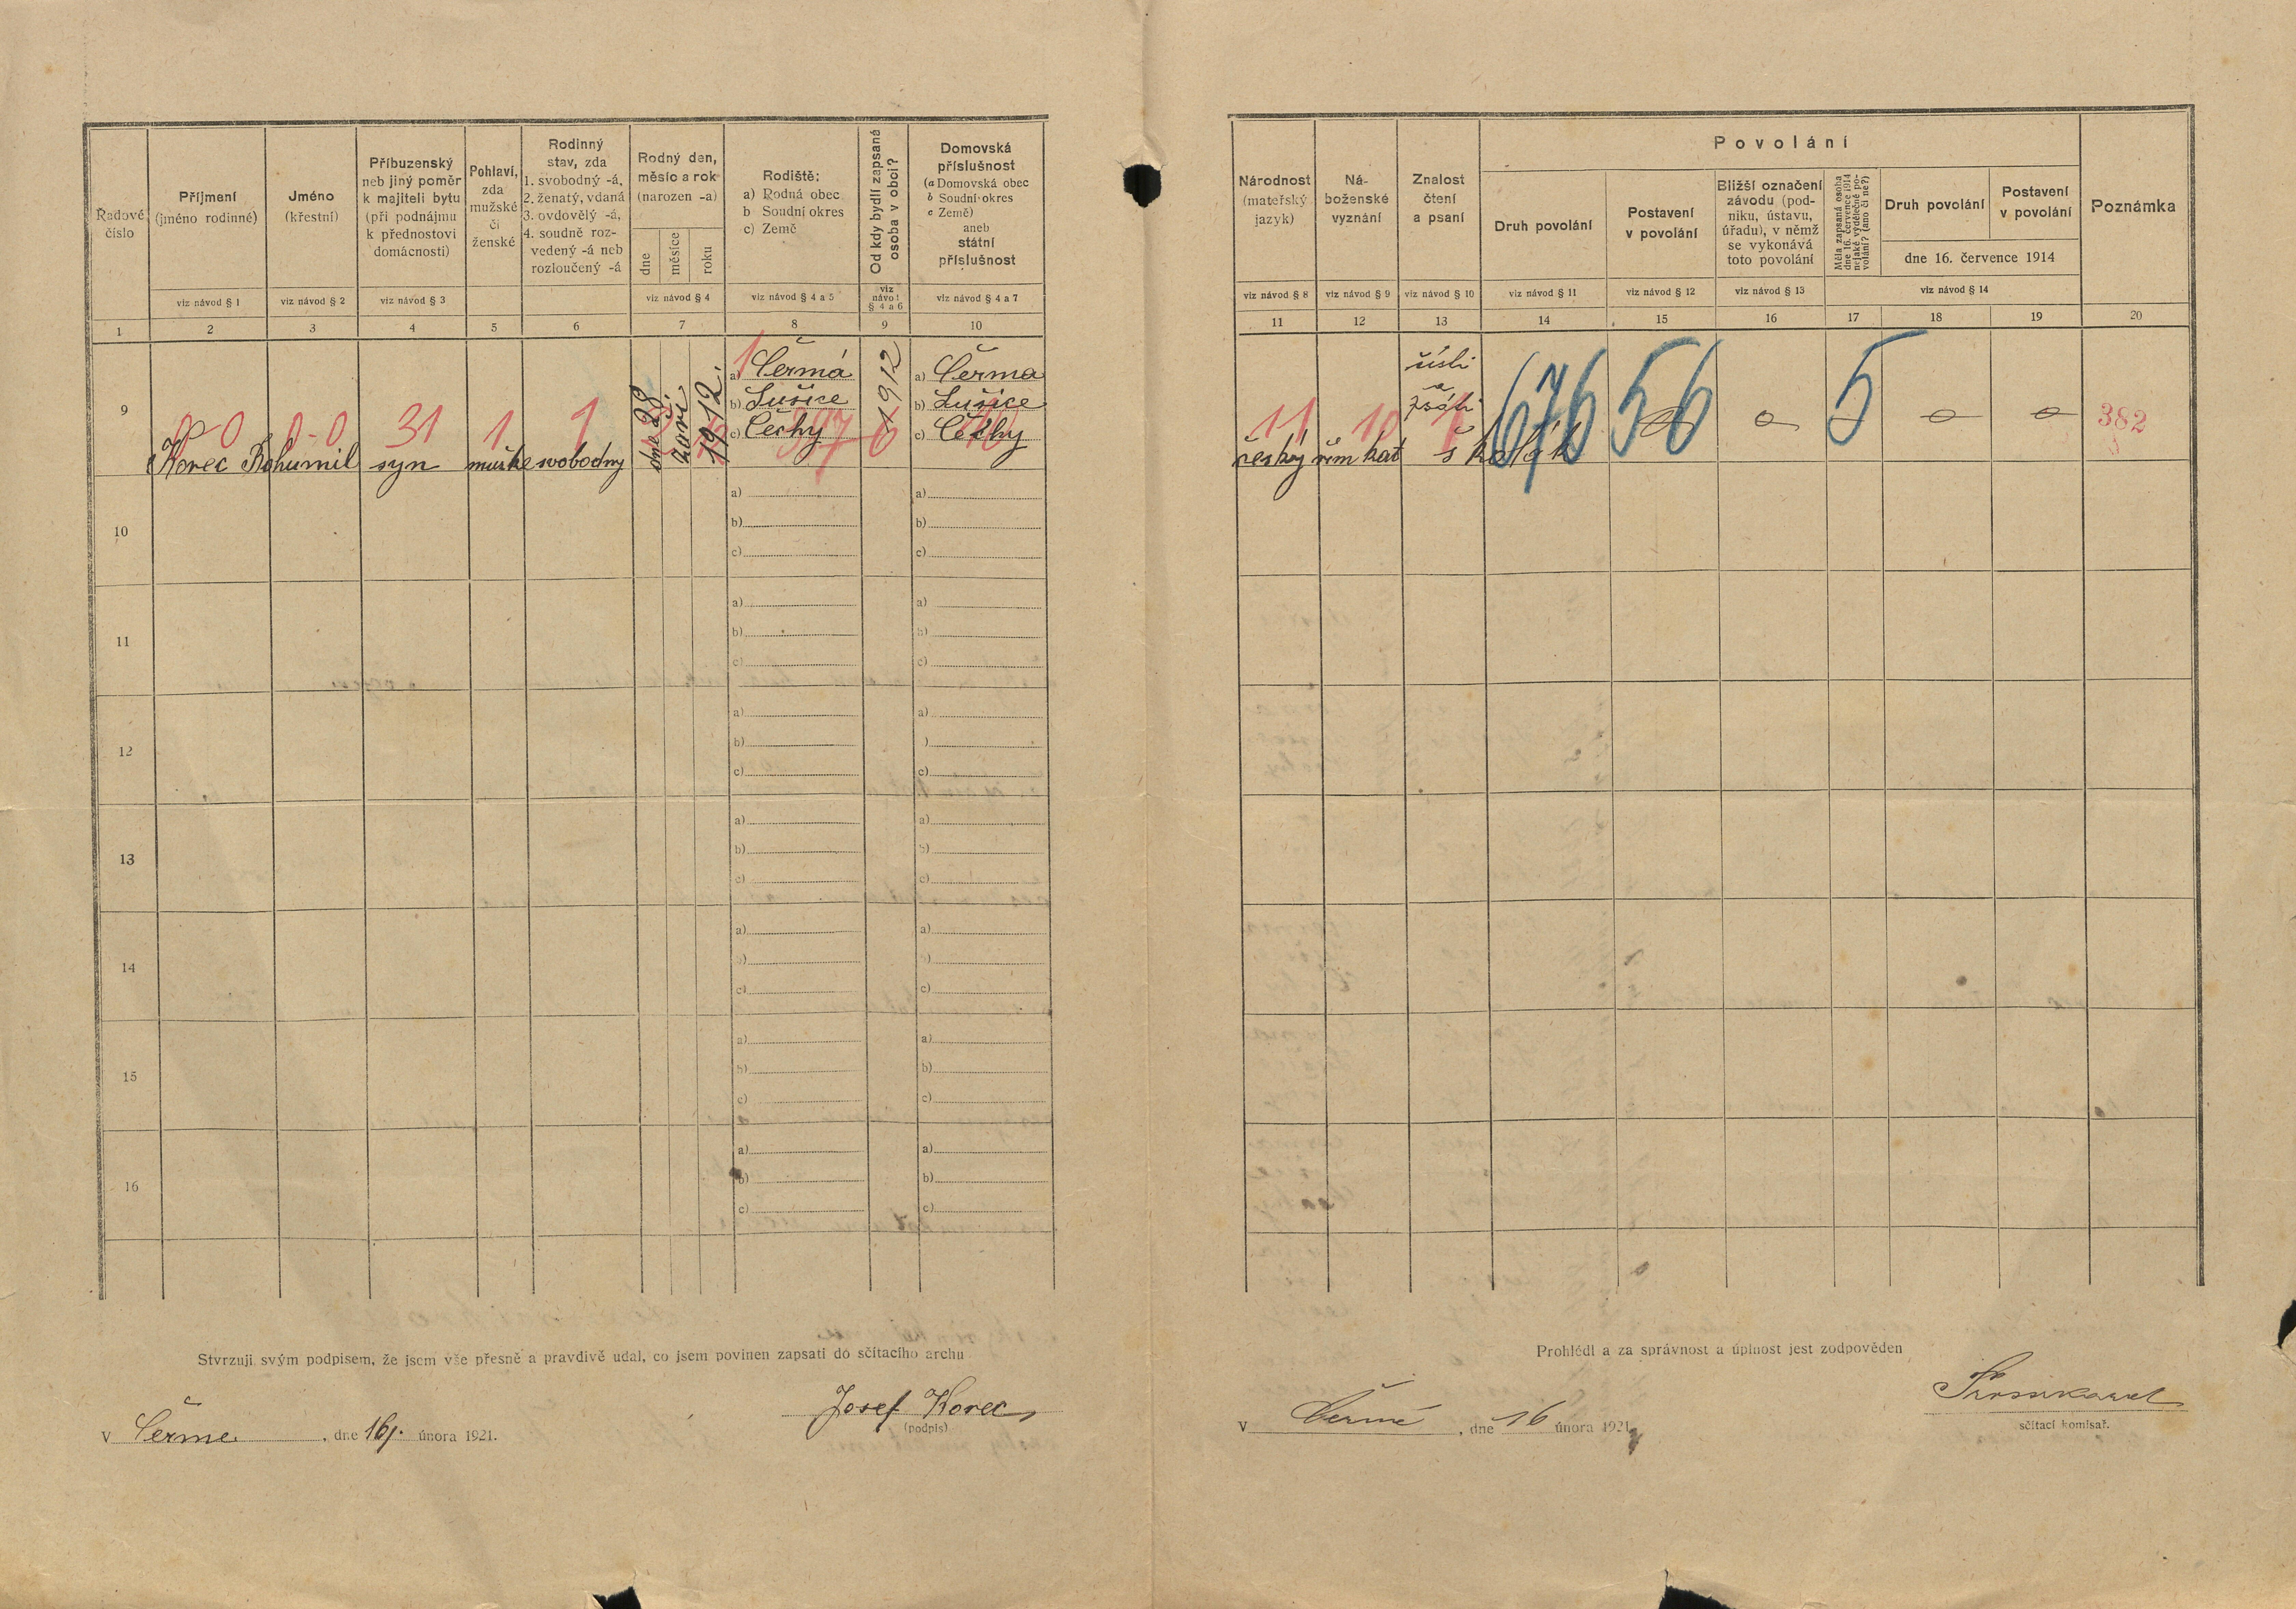 Řadové číslo
Příjmení (jméno rodinné)
Jméno (křestní)
Příbuzenský neb jiný poměr k majiteli bytu (při podnájmu k přednostovi domácnosti)
Pohlaví, zda mužské či ženské
Rodinný stav, zda 1. svobodný -á, 2. ženatý, vdaná 3. ovdovělý -á, 4. soudně rozvedený -á neb rozloučený -á
Rodný den, měsíc a rok (narozen -a)
dne měsíce roku
Rodiště:
a) Rodná obec
b Soudní okres
c) Země
Od kdy bydlí zapsaná osoba v obci?
Domovská příslušnost
(a Domovská obec
b Soudní okres
c Země)
aneb
státní příslušnost
viz návod § 1 viz návod § 2 viz návod § 3 viz návod § 4 viz návod § 4 a 5 viz návod § 4 a 6 viz návod § 4 a 7
1 2 3 4 5 6 7 8 9 10
9
0-0 0-0 31 1 1
Korec Bohumil syn mužské svobodný
dne 28. září 1912.
1
a) Čermá
b) Lušice
c) Čechy
1912
a) Čermá
b) Lušice
c) Čechy
10 a) b) c) a) b) c)
11 a) b) c) a) b) c)
12 a) b) c) a) ) c)
13 a) b) c) a) b) c)
14 a) b) c) a) b) c)
15 a) b) c) a) b) c)
16 a) b) c) a) b) c)
Stvrzuji svým podpisem, že jsem vše přesně a pravdivě udal, co jsem povinen zapsati do sčítacího archu
Josef Korec
(podpis)
V Čermé, dne 16. února 1921.
Národnost (mateřský jazyk)
Náboženské vyznání
Znalost čtení a psaní
Povolání
Druh povolání
Postavení v povolání
Bližší označení závodu (podniku, ústavu, úřadu), v němž se vykonává toto povolání
Měla zapsaná osoba dne 16. července 1914 nějaké výdělečné povolání? (ano či ne?)
Druh povolání
Postavení v povolání
dne 16. července 1914
Poznámka
viz návod § 8 viz návod § 9 viz návod § 10 viz návod § 11 viz návod § 12 viz návod § 13 viz návod § 14
11 12 13 14 15 16 17 18 19 20
čísti
a
psáti
11 10 1 676 56 5 382
český řím kat školák
Prohlédl a za správnost a úplnost jest zodpověden
sčítací komisař.
V Čermé, dne 16 února 1921